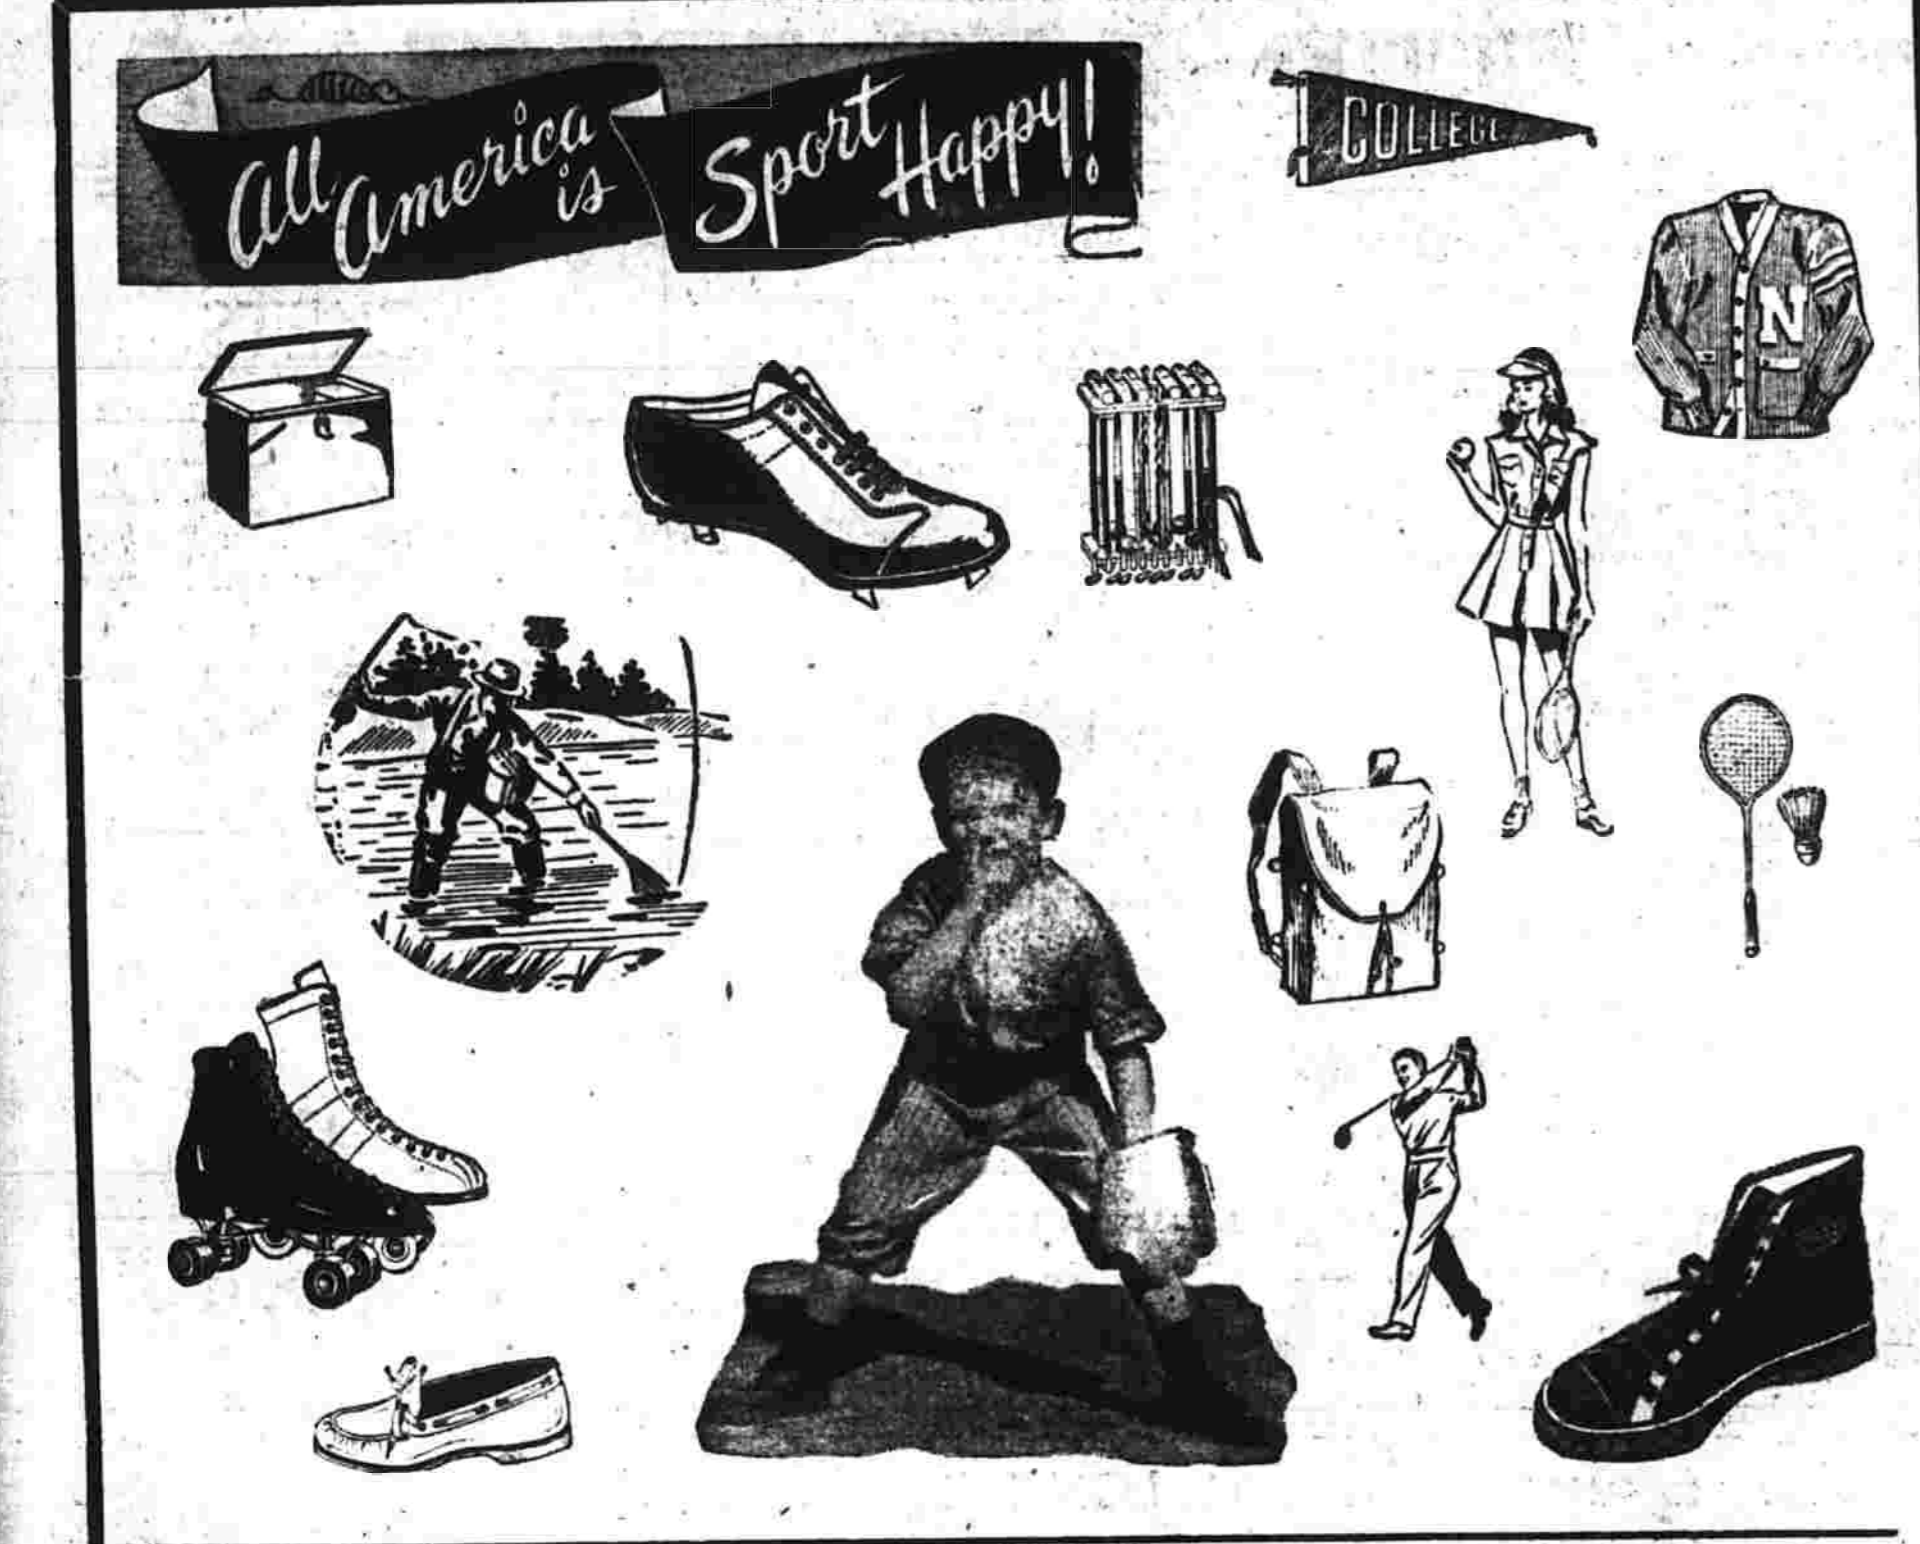 All America
is
Sport
Happy!
COLLEGE
N